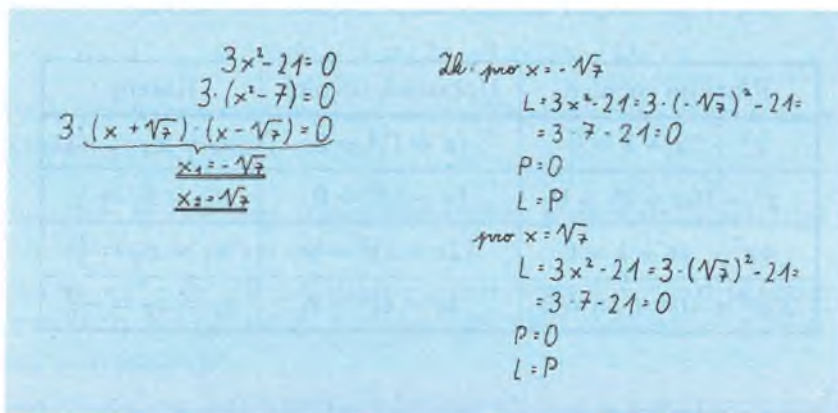 3x² - 21 = 0
3 · (x² - 7) = 0
3 · (x + √7) · (x - √7) = 0
x₁ = -√7
x₂ = √7
Zk: pro x = -√7
L = 3x² - 21 = 3 · (-√7)² - 21 =
= 3 · 7 - 21 = 0
P = 0
L = P
pro x = √7
L = 3x² - 21 = 3 · (√7)² - 21 =
= 3 · 7 - 21 = 0
P = 0
L = P